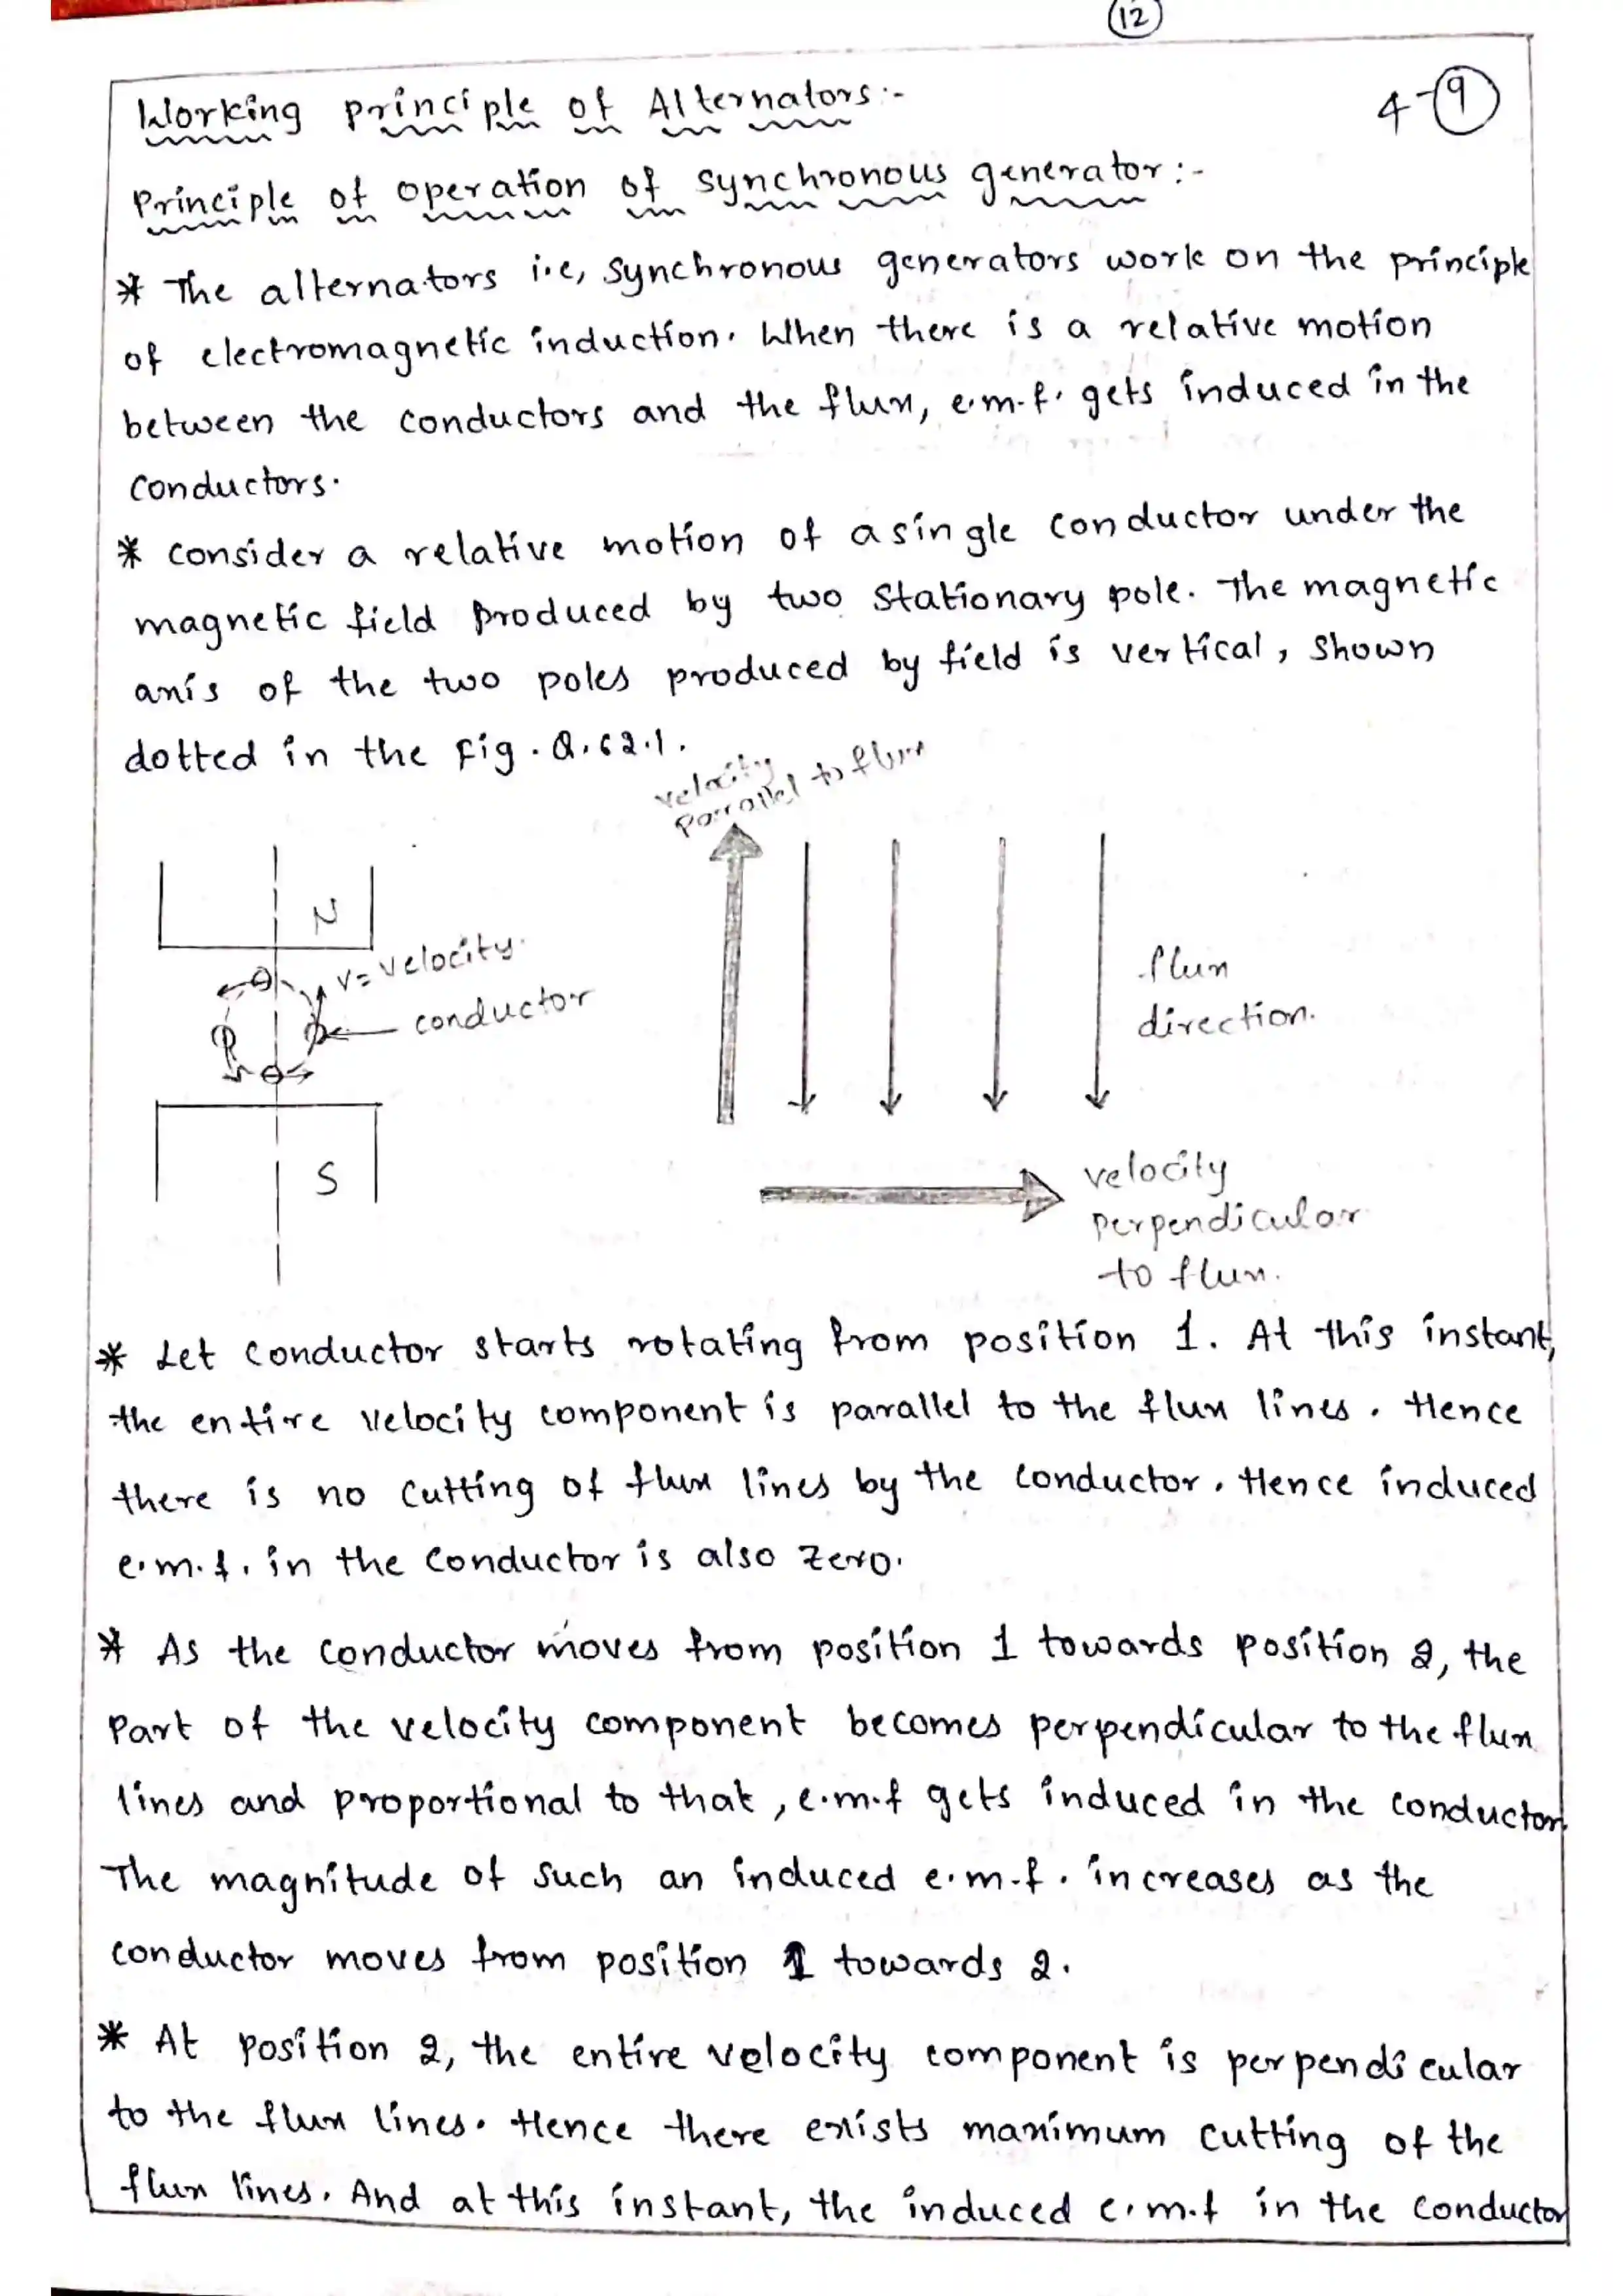 12
Working principle of Alternators :-
4-9
Principle of operation of synchronous generator :-
* The alternators i.e, synchronous generators work on the principle
of electromagnetic induction. When there is a relative motion
between the conductors and the flux, e.m.f. gets induced in the
conductors.
* consider a relative motion of a single conductor under the
magnetic field produced by two stationary pole. The magnetic
axis of the two poles produced by field is vertical, shown
dotted in the Fig. Q.62.1.
velocity
parallel to flux
N
v = velocity.
conductor
flux
direction.
S
velocity
perpendicular
to flux.
* Let conductor starts rotating from position 1. At this instant,
the entire velocity component is parallel to the flux lines. Hence
there is no cutting of flux lines by the conductor. Hence induced
e.m.f. in the conductor is also zero.
* As the conductor moves from position 1 towards position 2, the
part of the velocity component becomes perpendicular to the flux
lines and proportional to that, e.m.f gets induced in the conductor.
The magnitude of such an induced e.m.f. increases as the
conductor moves from position 1 towards 2.
* At position 2, the entire velocity component is perpendicular
to the flux lines. Hence there exists maximum cutting of the
flux lines. And at this instant, the induced e.m.f in the conductor